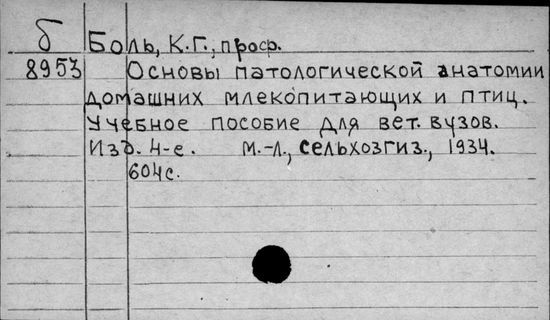 б Боль, К.Г., проф.
8953 Основы патологической анатомии
домашних млекопитающих и птиц.
Учебное пособие для вет. вузов.
Изд. 4-е. М.-Л., Сельхозгиз., 1934.
604с.